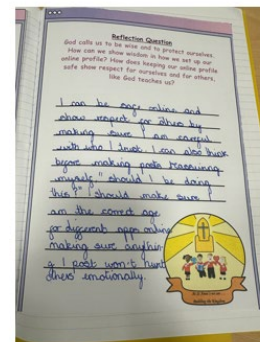 Reflection Question
God calls us to be wise and to protect ourselves.
How can we show wisdom in how we set up our
online profile? How does keeping our online profile
safe show respect for ourselves and for others,
like God teaches us?
I can be safe online and
show respect for others by
making sure I am careful
with who I trust. I can also think
before making posts reassuring
myself, "should I be doing
this?" I should make sure I
am the correct age
for different apps online
making sure anythin-
g I post won't hurt
others emotionally.